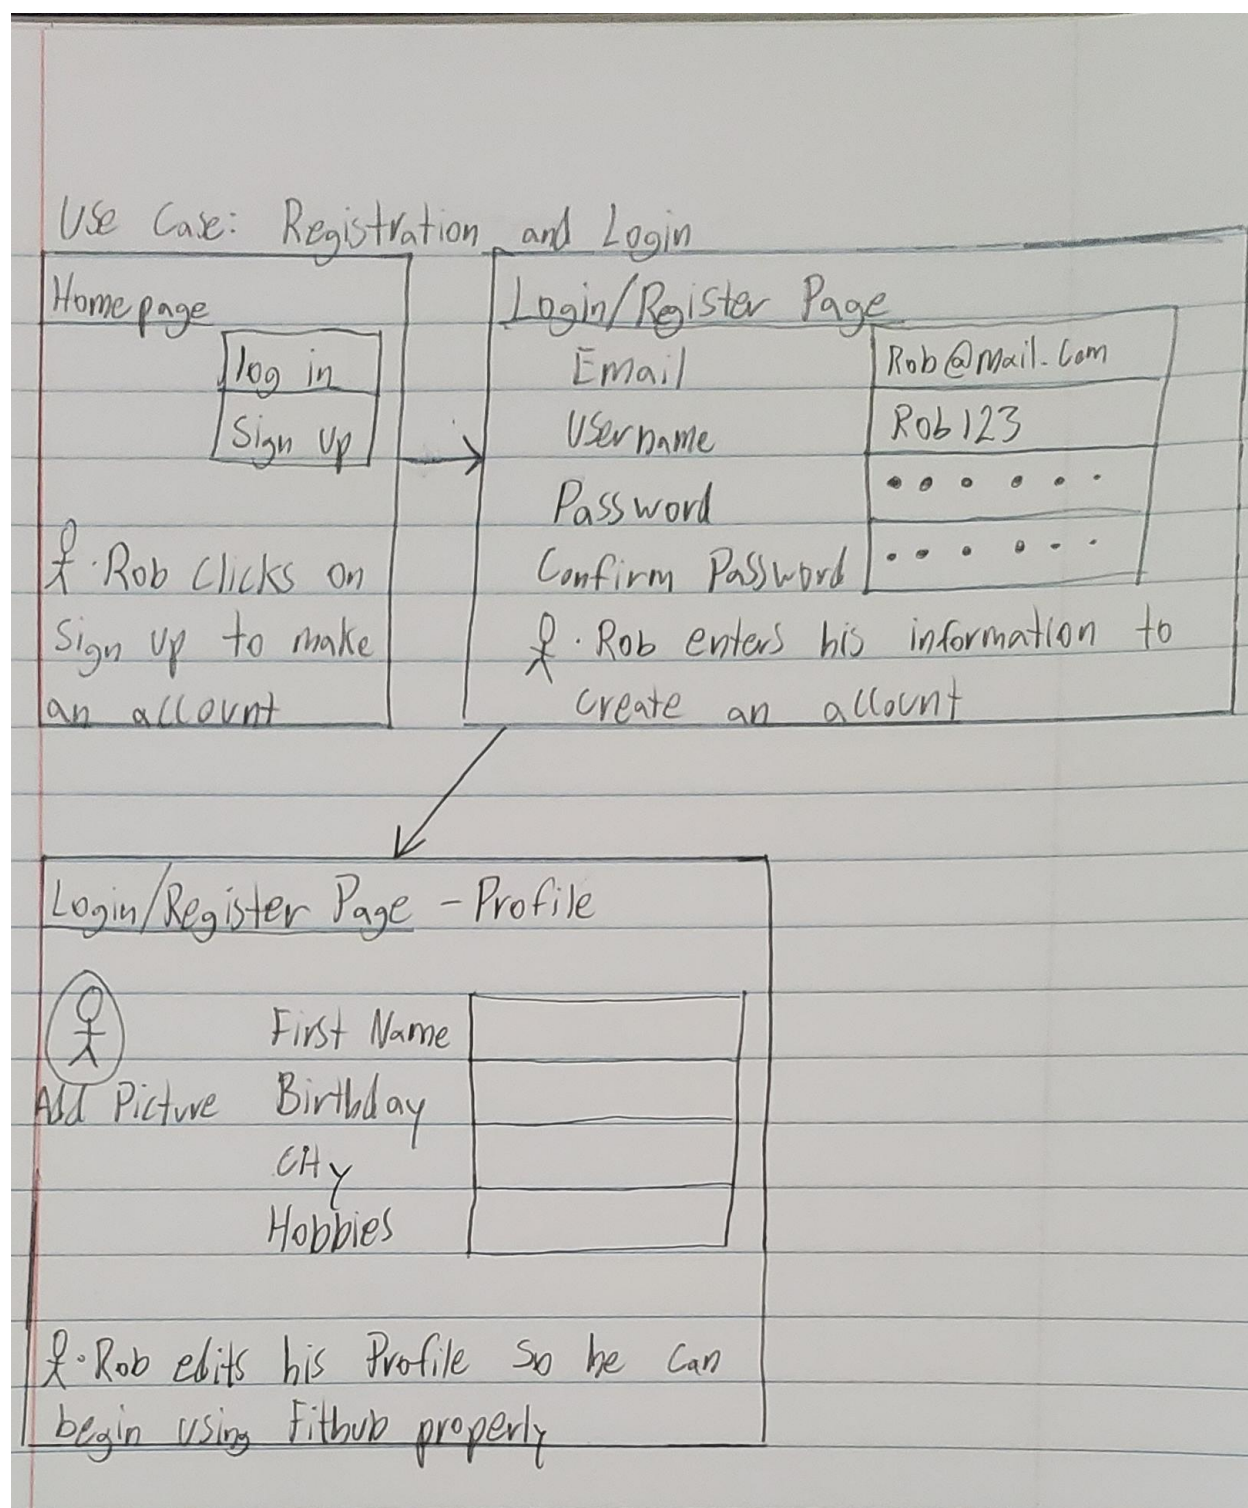 Use Case: Registration and Login
Homepage
log in
Sign up
Rob clicks on
sign up to make
an account
Login/Register Page
Email
Rob@mail.com
Username
Rob123
Password
• • • • • •
Confirm Password
• • • • • •
Rob enters his information to
create an account
Login/Register Page - Profile
First Name
Add Picture
Birthday
City
Hobbies
Rob edits his Profile so he can
begin using Fithub properly